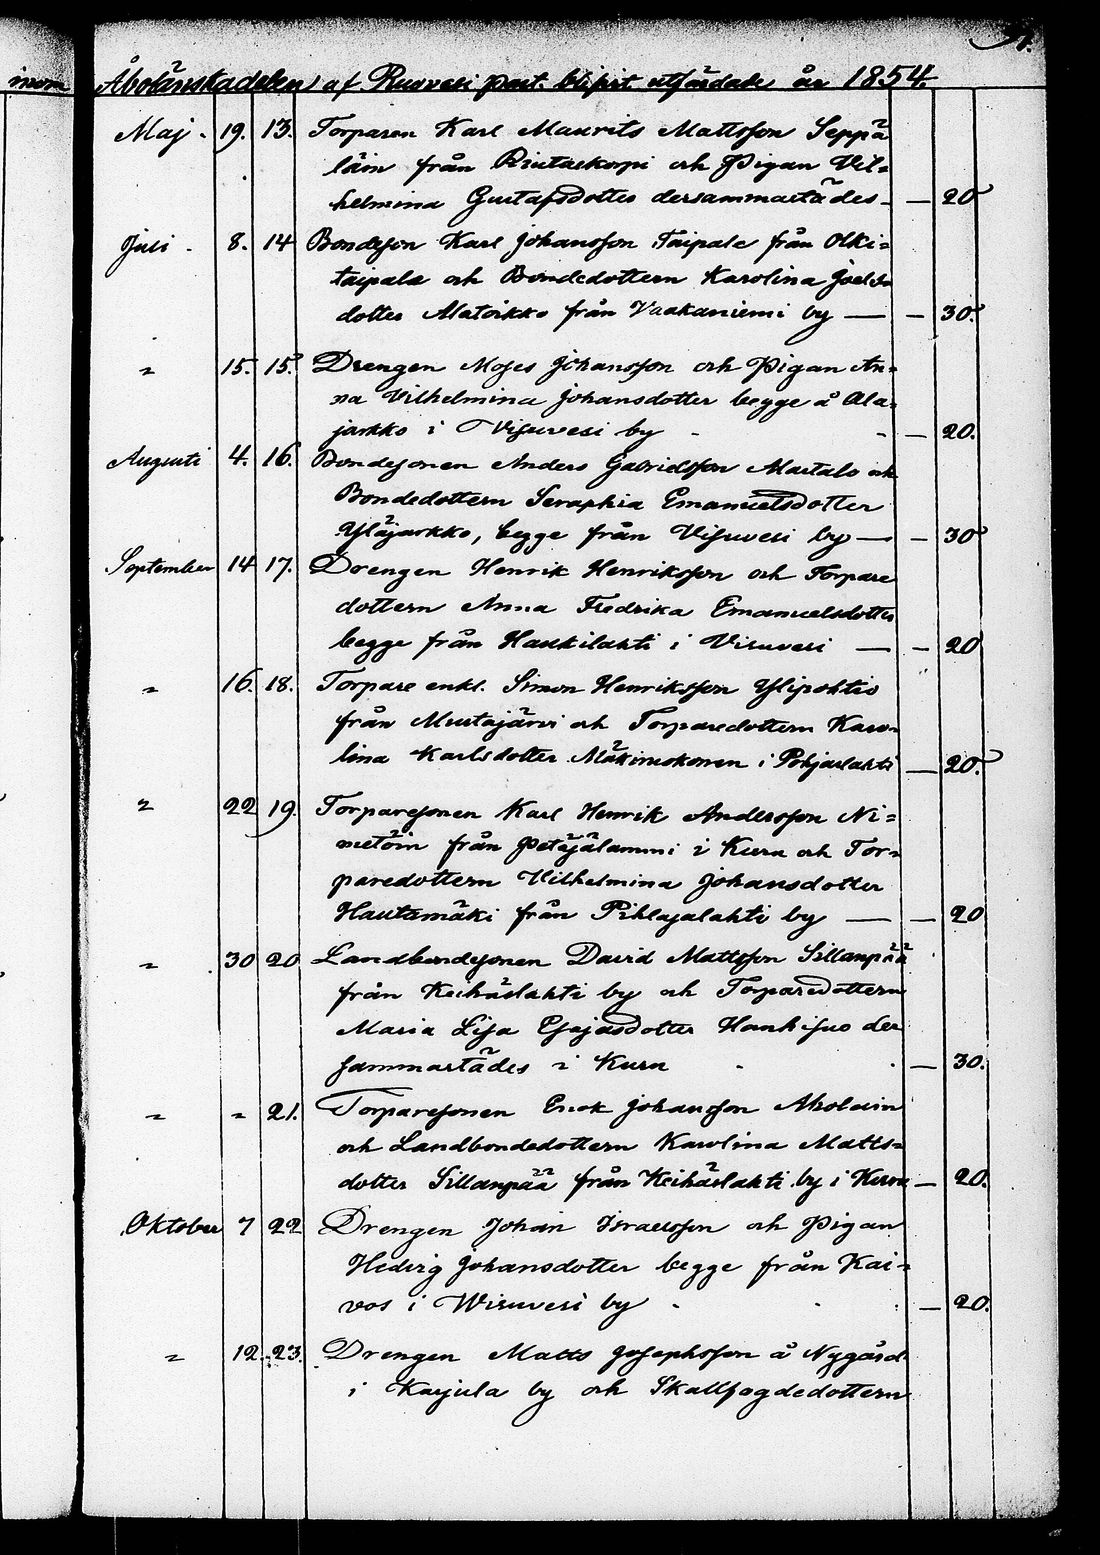 inom Åbolänskadelen af Ruovesi past. blifvit utfärdade år 1854.
Maj. 19. 13. Torparen Karl Maurits Mattsson Seppä
läin från Riutaskorpi och Pigan Vil=
helmina Gustafsdotter dersammastädes — 20
Juli 8. 14 Bondeson Karl Johansson Taipale från Olki=
taipale och Bondedottern Karolina Joels
dotter Matoikko från Vaakaniemi by — — 30.
" 15. 15. Drengen Moses Johansson och Pigan An=
na Vilhelmina Johansdotter begge å Ala=
jarkko i Visuvesi by — 20.
Augusti 4. 16. Bondesonen Anders Gabrielsson Martala och
Bondedottern Seraphia Emanuelsdotter
Yläjarkko, begge från Visuvesi by — — 30
September 14 17. Drengen Henrik Henriksson och Torpare
dottern Anna Fredrika Emanuelsdotter
begge från Haukilahti i Visuvesi — — 20
" 16. 18. Torpare enkl. Simon Henriksson Ylipohtio
från Mustajärvi och Torparedottern Karo=
lina Karlsdotter i Pohjaslahti — 20.
" 22 19. Torparesonen Karl Henrik Andersson Ni=
metöin från Petäjälammi i Kuru och Tor=
paredottern Vilhelmina Johansdotter
Hautamäki från Pihlajalahti by — — 20
" 30 20 Landbondesonen David Mattsson Sillanpää
från Keihäslahti by och Torparedottern
Maria Lisa Esajasdotter Hankisuo der
sammastädes i Kuru — 30.
" " 21. Torparesonen Erick Johansson Aholain
och Landbondedottern Karolina Matts=
dotter Sillanpää från Keihäslahti by i Kuru — 20.
Oktober 7 22 Drengen Johan Israelsson och Pigan
Hedvig Johansdotter begge från Kai=
vos i Wisuvesi by — 20.
" 12. 23. Drengen Matts Josephsson å Nygård
i Karjula by och Skallfogdedottern